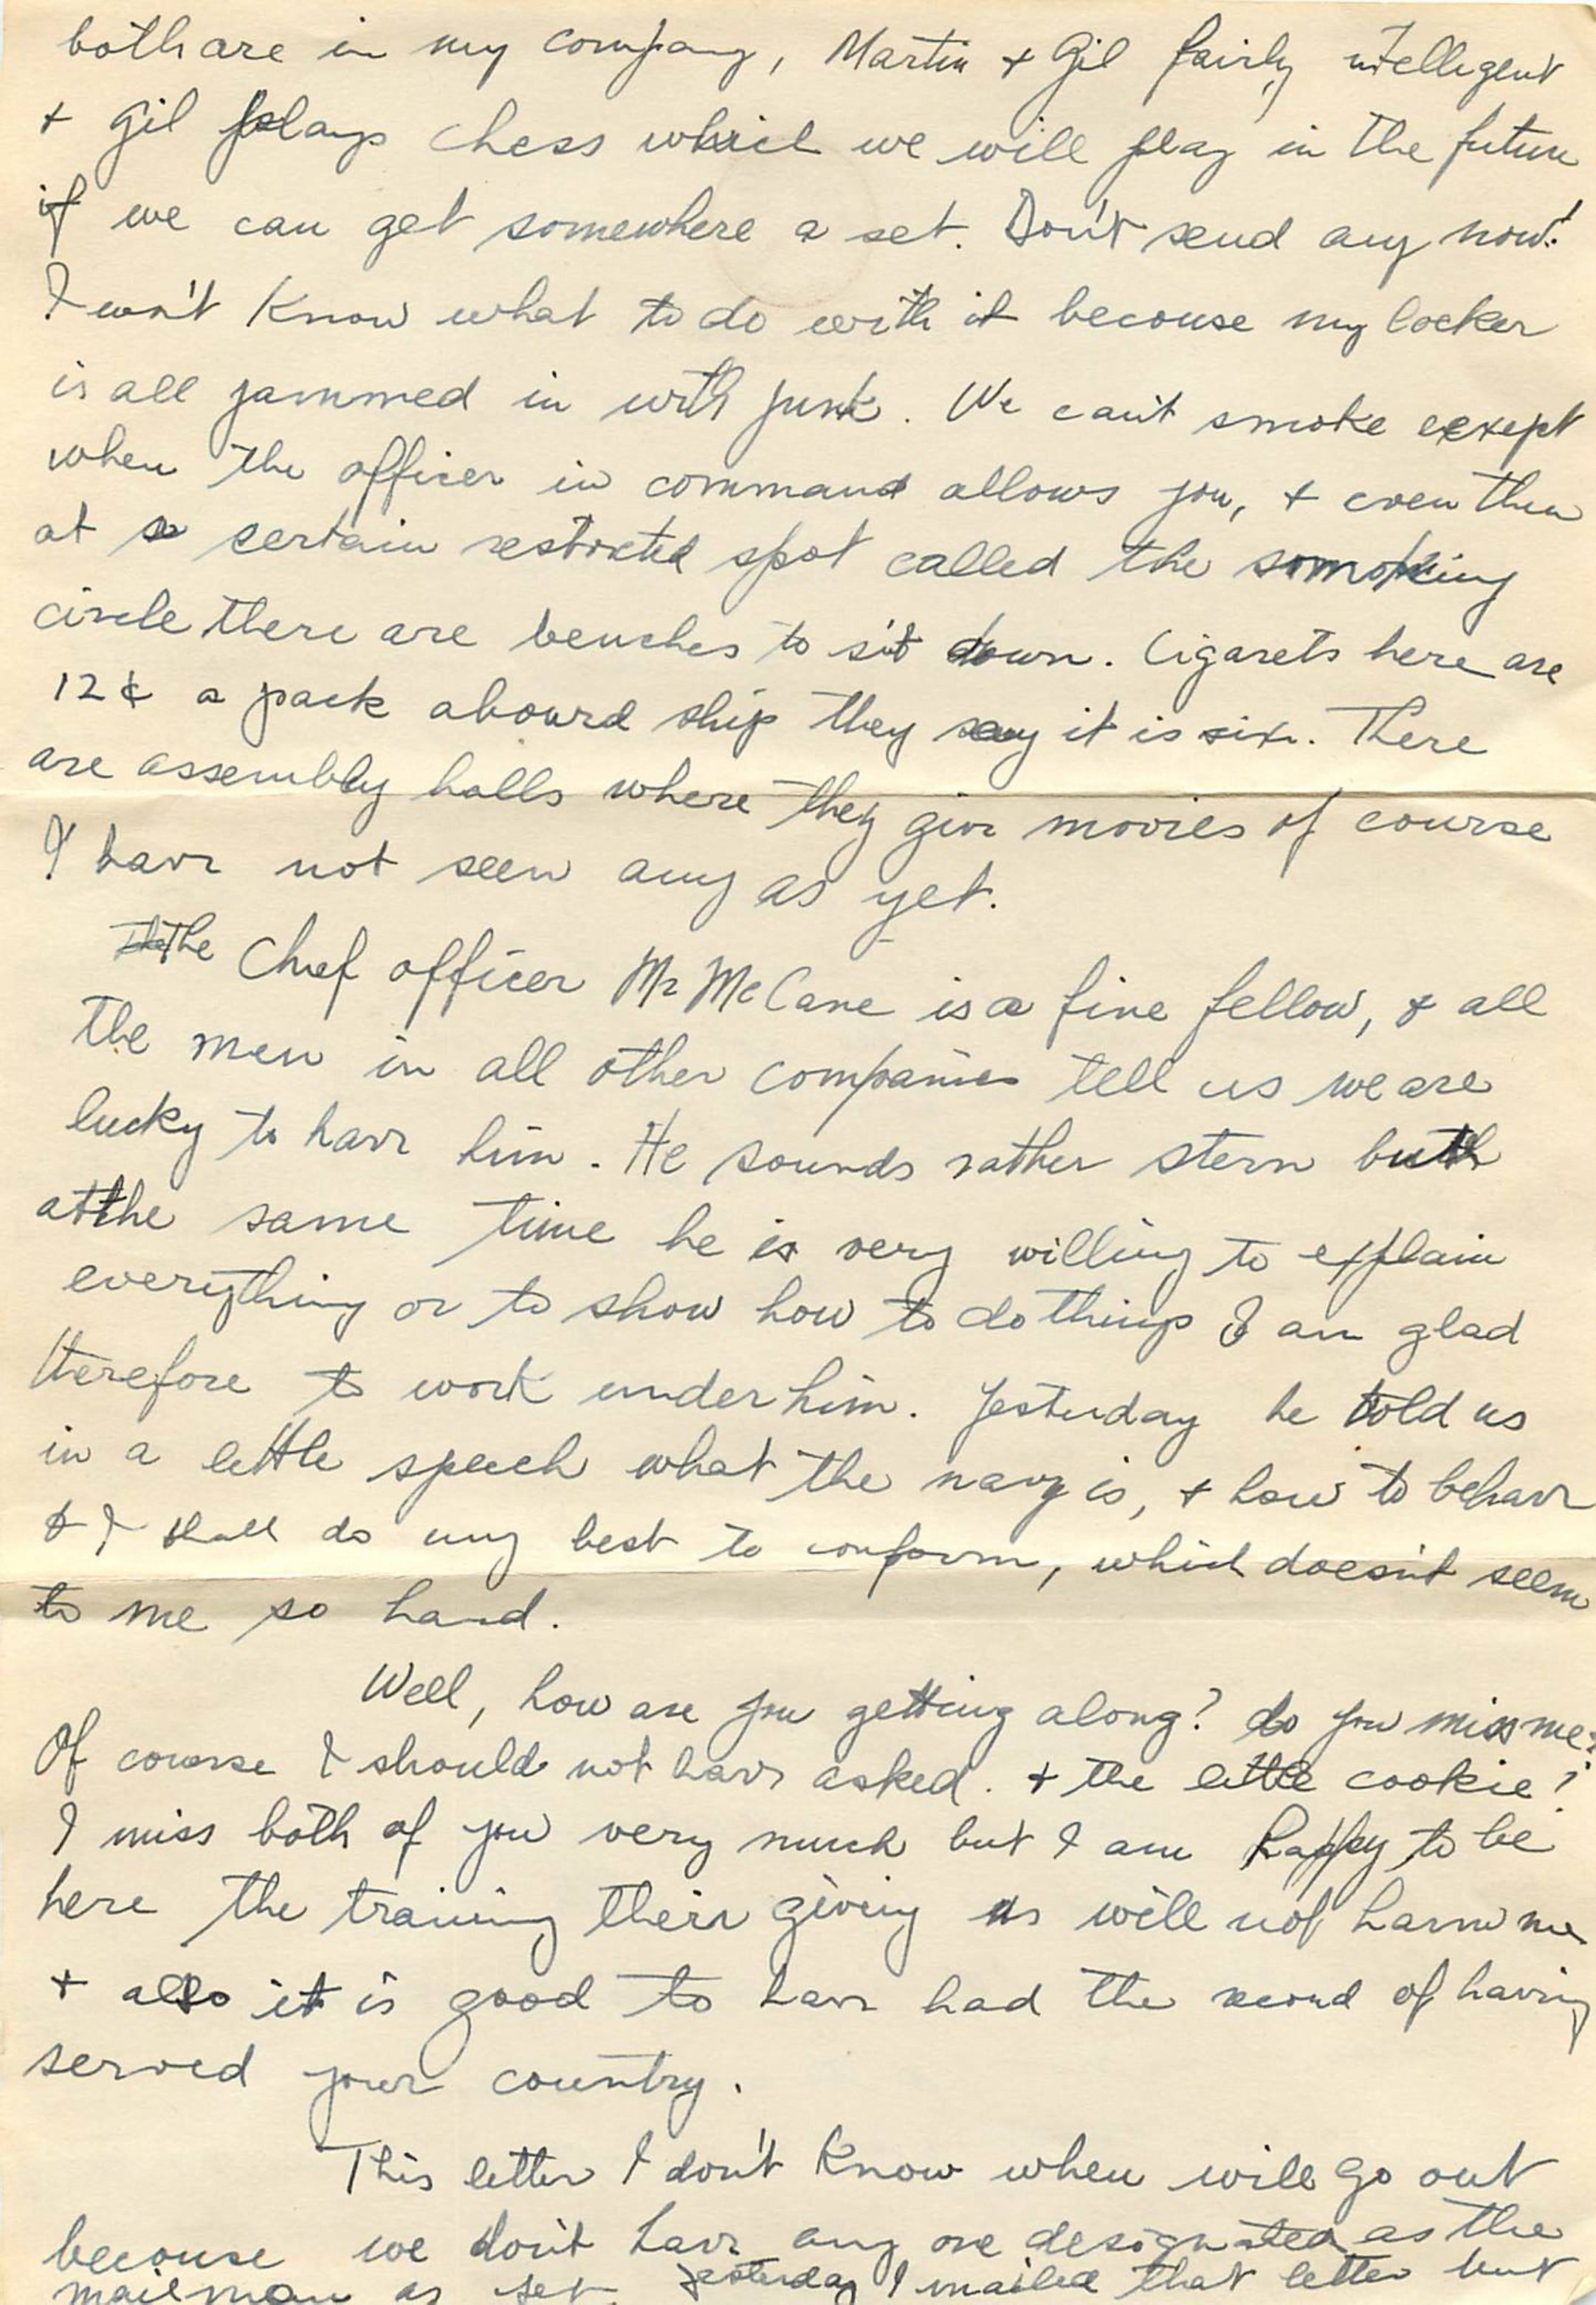 both are in my company, Martin + Gil fairly intelligent
+ Gil plays chess which we will play in the future
if we can get somewhere a set. Don't send any now!
I won't know what to do with it becouse my locker
is all jammed in with junk. We can't smoke except
when the officer in command allows you, + even then
at a certain restricted spot called the smoking
circle there are benches to sit down. Cigarets here are
12¢ a pack abourd ship they say it is six. There
are assembly halls where they give movies of course
I have not seen any as yet.
The Chief officer Mr McCane is a fine fellow, + all
the men in all other companies tell us we are
lucky to have him. He sounds rather stern but
at the same time he is very willing to explain
everything or to show how to do things I am glad
therefore to work under him. Yesterday he told us
in a little speech what the navy is, + how to behave
+ I shall do my best to conform, which doesn't seem
to me so hard.
Well, how are you getting along? do you miss me?
Of course I should not have asked. + the little cookie?
I miss both of you very much but I am happy to be
here the training their giving us will not harm me
+ also it is good to have had the record of having
served your country.
This letter I don't know when will go out
becouse we don't have any one designated as the
mailman as yet. Yesterday I mailed that letter but